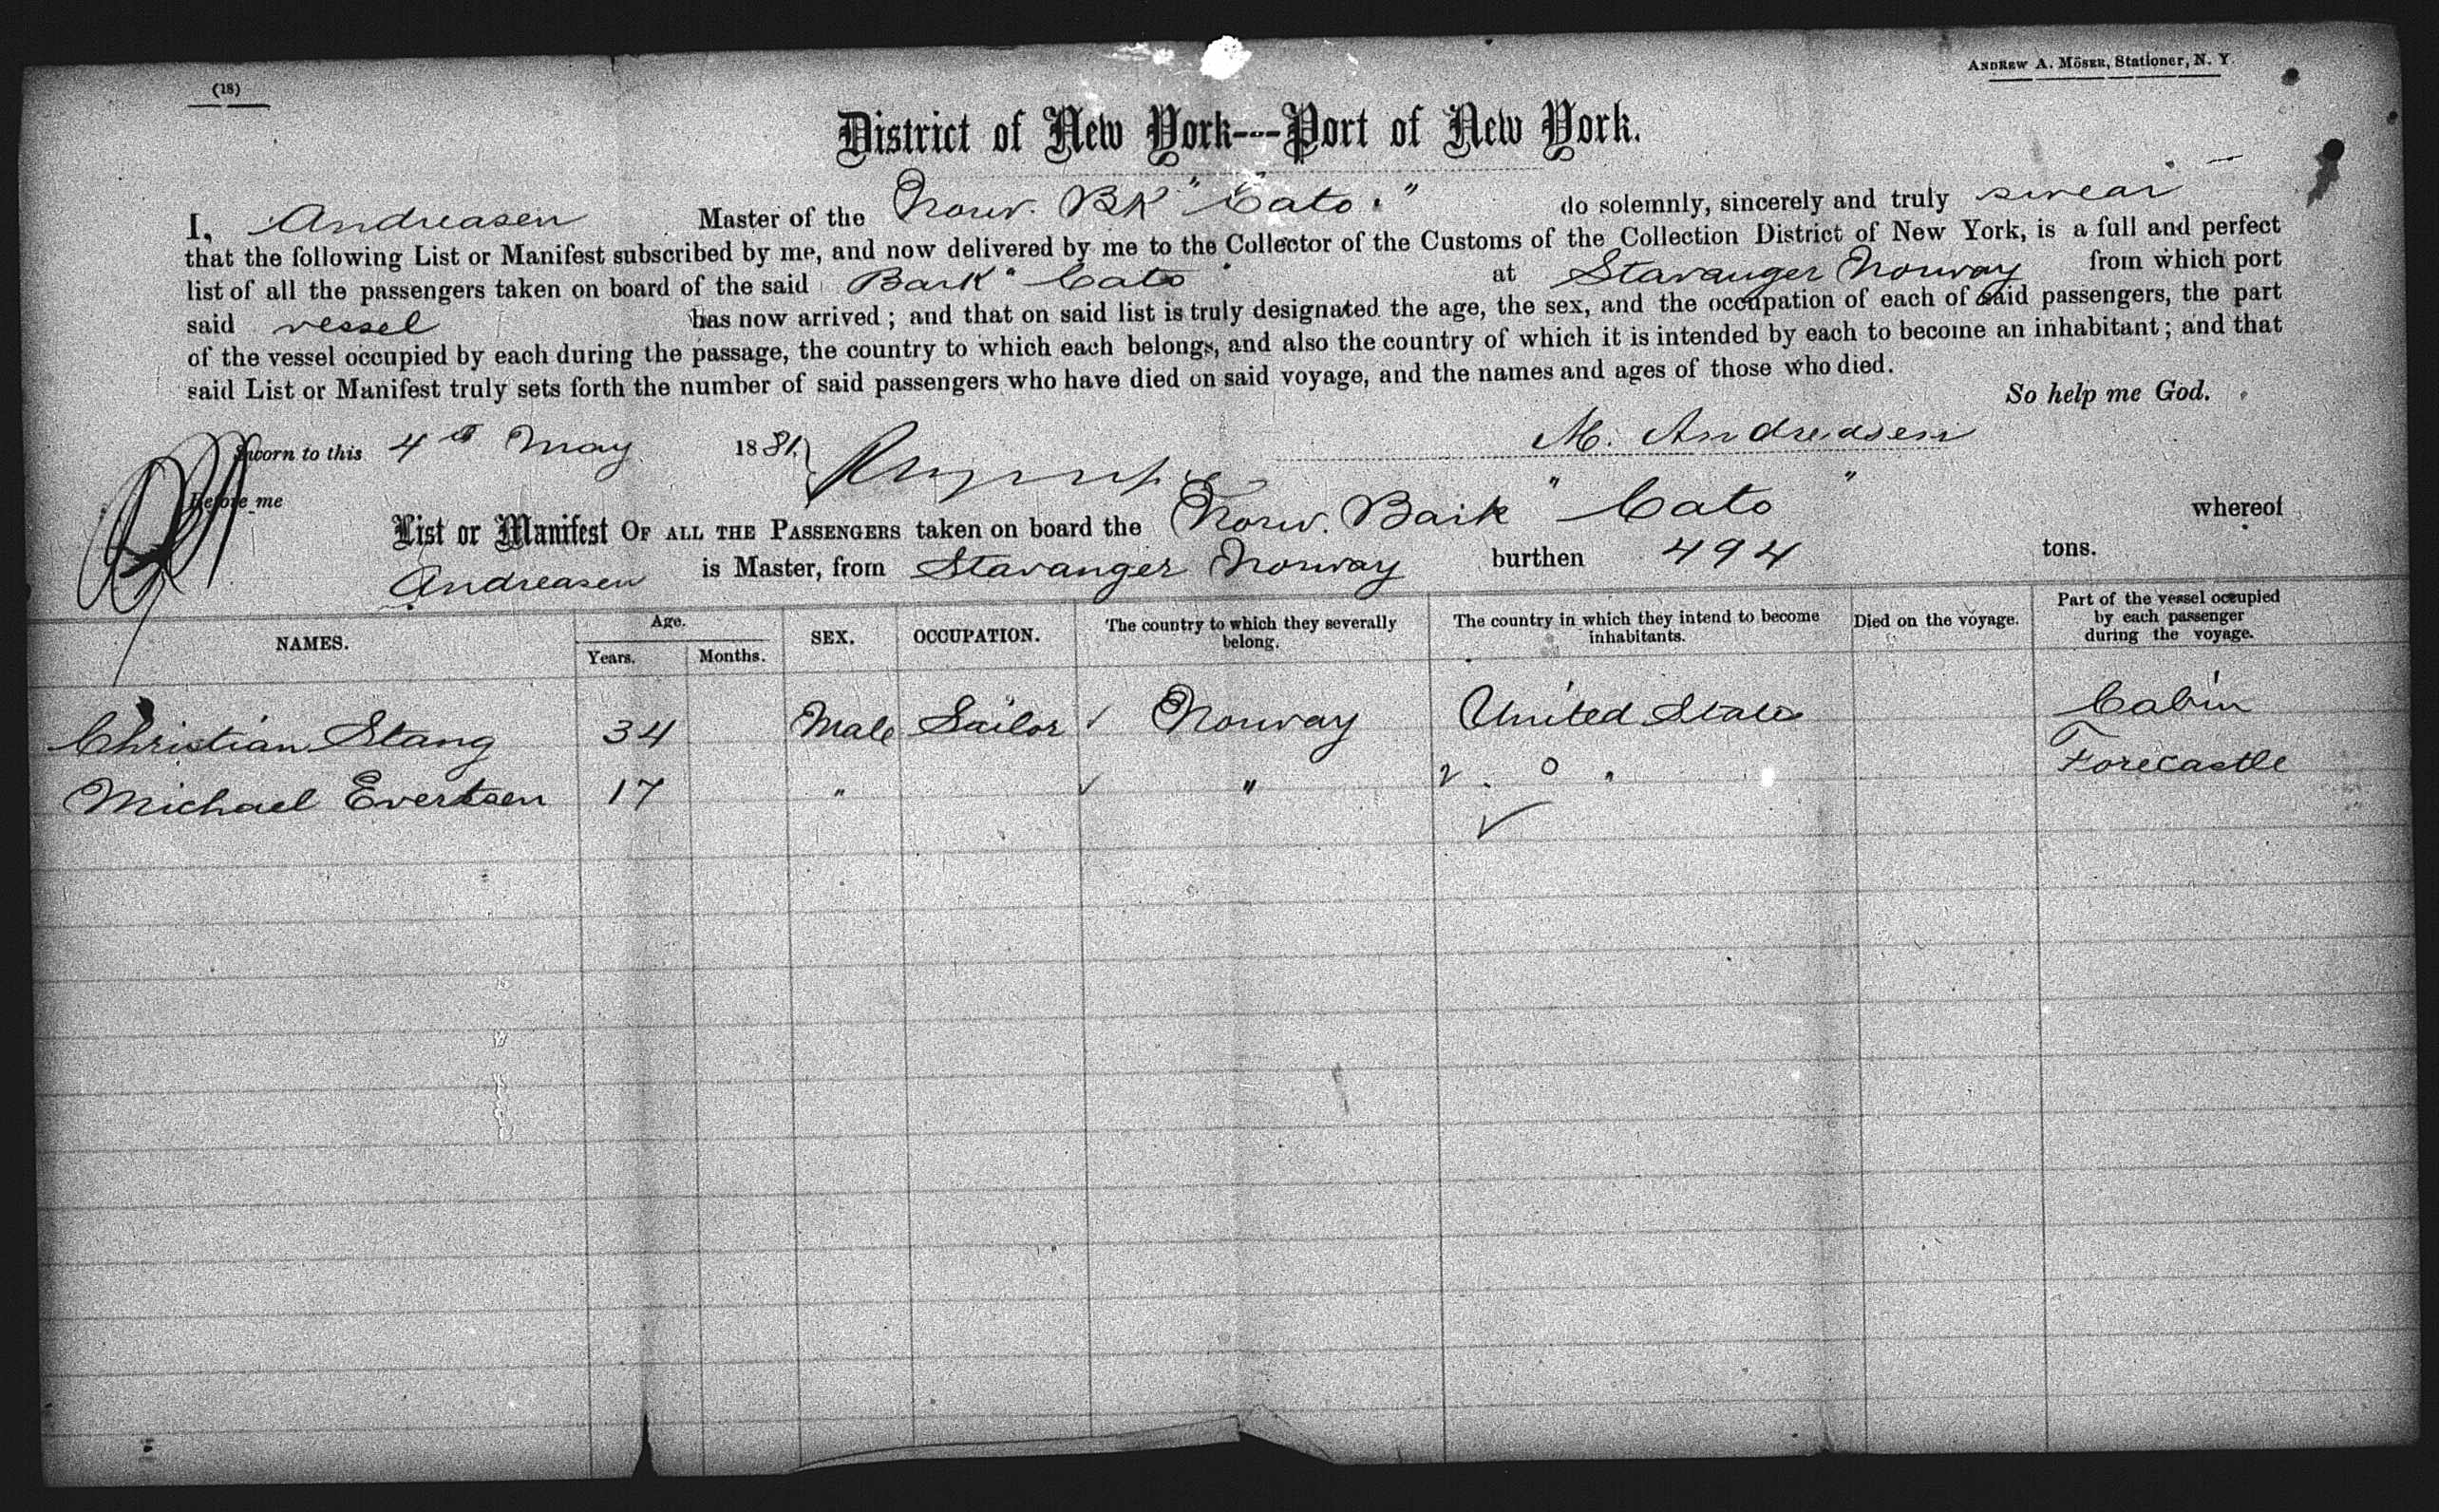 (18)
ANDREW A. MÖSER, Stationer, N. Y.
District of New York---Port of New York.
I, Andreasen Master of the Norw. BK "Cato." do solemnly, sincerely and truly swear
that the following List or Manifest subscribed by me, and now delivered by me to the Collector of the Customs of the Collection District of New York, is a full and perfect
list of all the passengers taken on board of the said Bark "Cato" at Stavanger Norway from which port
said vessel has now arrived; and that on said list is truly designated the age, the sex, and the occupation of each of said passengers, the part
of the vessel occupied by each during the passage, the country to which each belongs, and also the country of which it is intended by each to become an inhabitant; and that
said List or Manifest truly sets forth the number of said passengers who have died on said voyage, and the names and ages of those who died.
So help me God.
Sworn to this 4th May 1881. M. Andreasen
Before me
List or Manifest OF ALL THE PASSENGERS taken on board the Norw. Bark "Cato" whereof
Andreasen is Master, from Stavanger Norway burthen 494 tons.
NAMES. Age. Years. Months. SEX. OCCUPATION. The country to which they severally belong. The country in which they intend to become inhabitants. Died on the voyage. Part of the vessel occupied by each passenger during the voyage.
Christian Stang 34 Male Sailor Norway United States Cabin
Michael Evertsen 17 " " " 0 " Forecastle